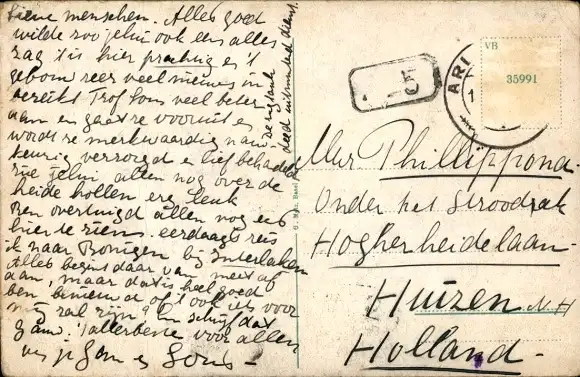 Lieve menschen. Alles goed
wilde zoo jelui ook eens alles
zag 't is hier prachtig es 't
veel nieuws in
Trof Lous veel beter
aan en gaat ze vooruit es
wordt ze merkwaardig
keurig verzorgd e lief behandeld
jelui allen nog over de
heide hollen erg leuk
Ben overtuigd allen nog eens
hier te zien. eerdaags reis
ik naar Bönigen bij Interlaken
Alles begint daar van meet af
aan, maar dat is heel goed
ben benieuwd of 't ook iets voor
mij zal zijn? En schrijf dat
gauw. 't allerbeste voor allen
van je Lous
VB
35991
5
ARI
Mevr Phillippona-
Onder het Stroodak
Hogherheidelaan-
Huizen N.H
Holland-